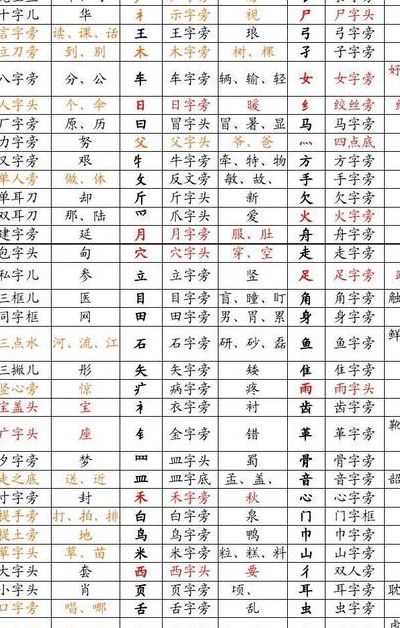 十字儿 华 礻 示字旁 视 尸 尸字头
言字旁 读、课、话 王 王字旁 琅 弓 弓字旁
立刀旁 到、别 木 木字旁 树、棵 孑 子字旁
八字旁 分、公 车 车字旁 辆、输、轻 女 女字旁 好
人字头 个、伞 日 日字旁 暖 纟 绞丝旁
厂字旁 原、历 冒字头 冒、暑、显 马 马字旁
力字旁 努 父 父字头 爷、爸 灬 四点底
又字旁 艰 牜 牛字旁 牵、特、物 方 方字旁
单人旁 做、体 攵 反文旁 敏、故、 手 手字旁
单耳刀 却 斤 斤字头 新 欠 欠字旁
双耳刀 那、陆 爫 爪字头 爱 火 火字旁
建字旁 延 月 月字旁 服、肚 舟 舟字旁
包字头 句 穴 穴字头 穿、空 走 走字旁
私字儿 参 立 立字旁 竖 足 足字旁
三框儿 医 目 目字旁 盲、瞳、盯 角 角字旁 触
同字框 网 田 田字旁 男、胃、累 身 身字旁
三点水 河、流、江 石 石字旁 研、砂、磊 鱼 鱼字旁 鲜
三撇儿 形 矢 矢字旁 矮 隹 隹字旁
竖心旁 惊 疒 病字旁 疼 雨 雨字头
宝盖头 宝 衤 衣字旁 衬 齿 齿字旁
广字头 座 钅 金字旁 错 革 革字旁 靴
夕字旁 梦 罒 皿字头 蜀 骨 骨字旁
走之底 送、近 皿 皿字底 孟、盖、 音 音字旁 韶
寸字旁 封 禾 禾字旁 秋 心 心字旁
提手旁 打、拍、排 白 白字旁 泉 门 门字框
提土旁 地 鸟 鸟字旁 鸭 巾 巾字旁
草字头 草、苗 米 米字旁 粒、糕、料 山 山字旁
大字头 套 西 西字头 要 彳 双人旁
小字头 肖 页 页字旁 顷、 耳 耳字旁 耽
口字旁 唱、哪 舌 舌字旁 乱 虫 虫字旁